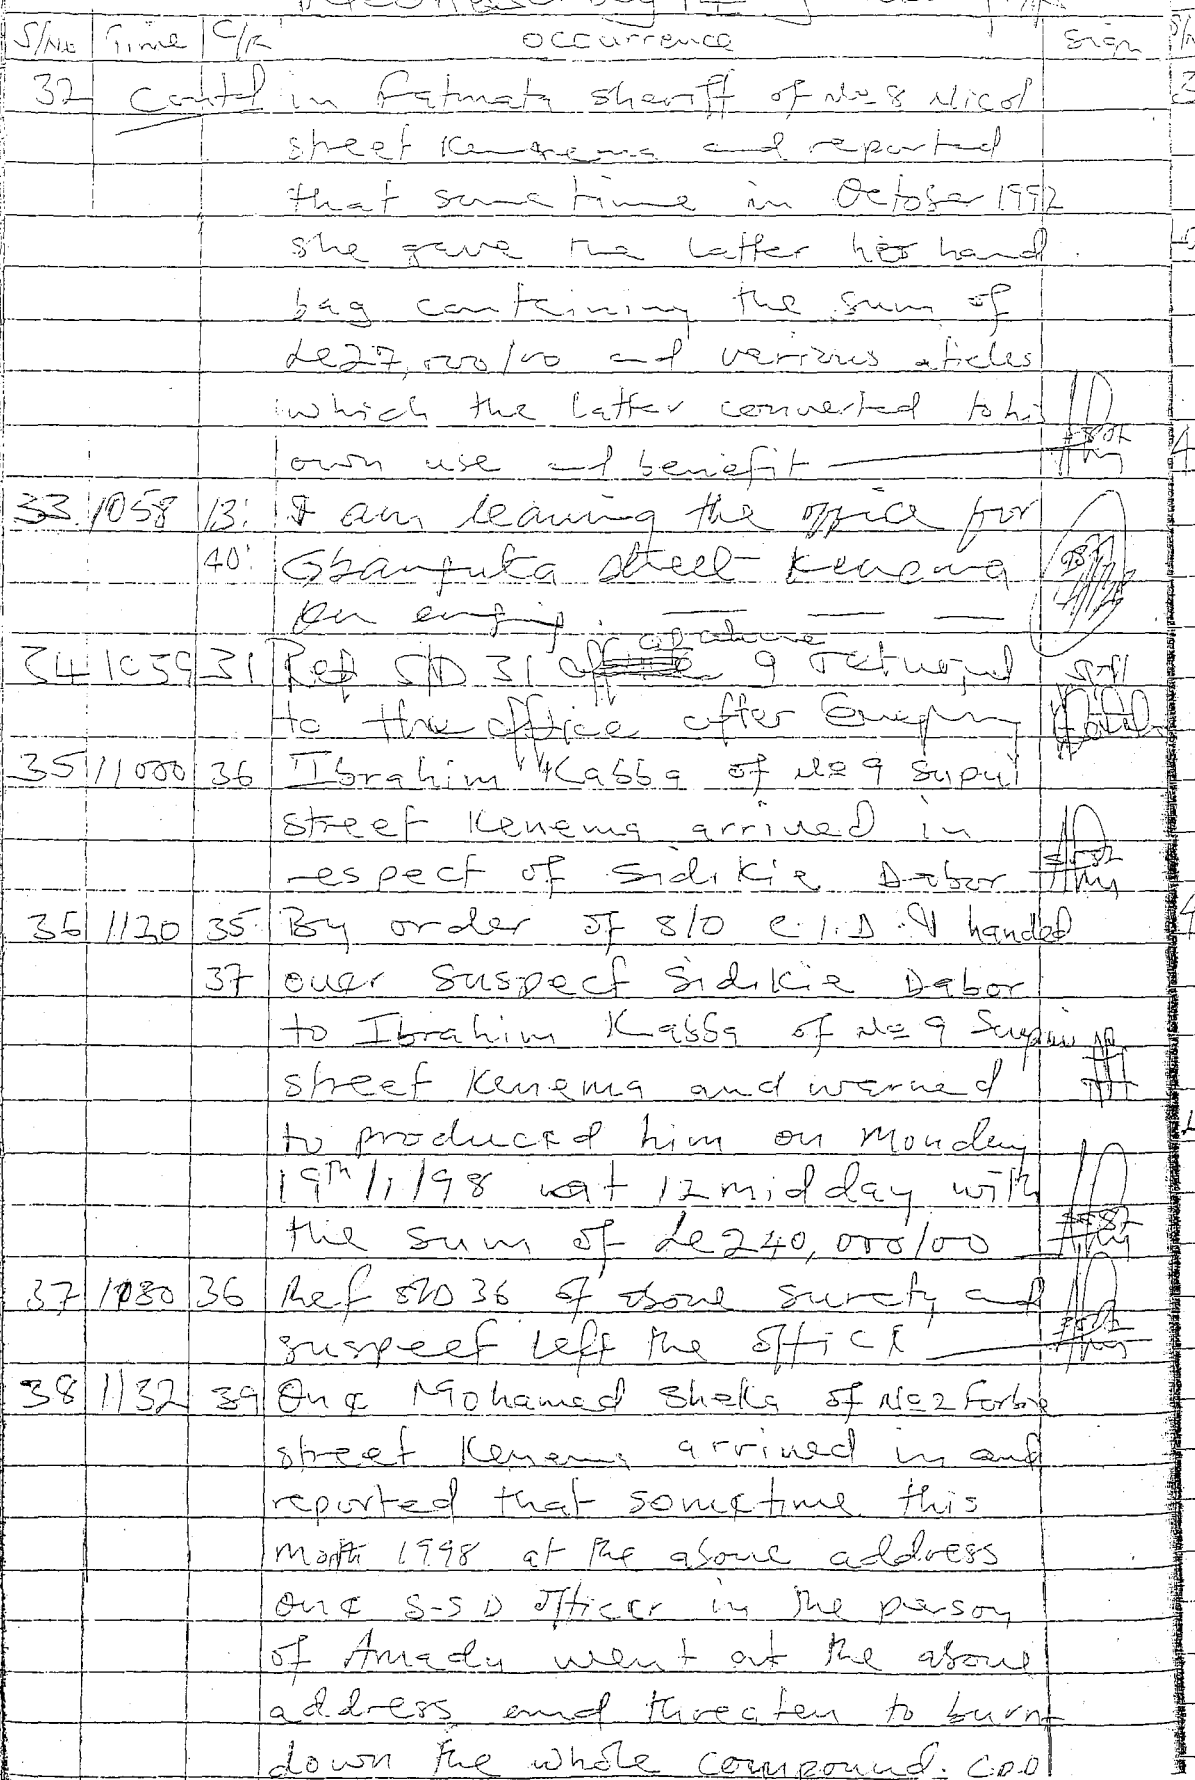 S/No Time C/R occurrence Sign
32 Contd in Fatmata Sheriff of No 8 Nicol
street Kenema and reported
that sometime in October 1992
she gave the latter her hand
bag containing the sum of
Le27,000/00 and various aticles
which the latter converted to hi
own use and benefit
33 1058 13: I am leaving the office for
40: street Kenema
on
34 1059 31 Ref S/D 31 of above 9 returned
to the office after
35 11000 36 Ibrahim Kabba of No 9
street Kenema arrived in
respect of Sidikie Dabor
36 1120 35 By order of S/O C.I.D I handed
37 over suspect Sidikie Dabor
to Ibrahim Kabba of No 9
street Kenema and warned
to produced him on Monday
19th/1/98 at 12 midday with
the sum of Le240,000/00
37 36 Ref S/D 36 of above surety and
suspect left the office
38 1132 39 One Mohamed Sheka of No 2
street Kenema arrived in and
reported that sometime this
month 1998 at the above address
one S-S D officer in the person
of Amadu went at the above
address and threaten to burnt
down the whole compound.